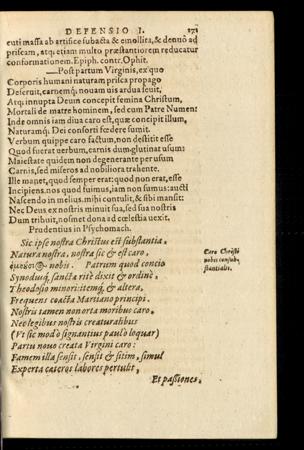 DEFENSIO I. 171
cuti massa ab artifice subacta & emollita, & denuò ad
priscam, atq; etiam multo præstantiorem reducatur
conformationem. Epiph. contr. Ophit.
—Post partum Virginis, ex quo
Corporis humani naturam prisca propago
Deseruit, carnemq; nouam uis ardua seuit,
Atq; innupta Deum concepit femina Christum,
Mortali de matre hominem, sed cum Patre Numen:
Inde omnis iam diua caro est, quæ concipit illum,
Naturamq; Dei consorti fœdere sumit.
Verbum quippe caro factum, non destitit esse
Quod fuerat uerbum, carnis dum glutinat usum:
Maiestate quidem non degenerante per usum
Carnis, sed miseros ad nobiliora trahente.
Ille manet, quod semper erat: quod non erat, esse
Incipiens. nos quod fuimus, iam non sumus: aucti
Nascendo in melius. mihi contulit, & sibi mansit:
Nec Deus ex nostris minuit sua, sed sua nostris
Dum tribuit, nosmet dona ad cœlestia uexit.
Prudentius in Psychomach.
Sic ipse nostra Christus est substantia,
Natura nostra, nostra sic & est caro,
Caro Christi
nobis consub-
stantialis.
ὁμούσιος nobis. Patrum quod concio
Synodusq; sancta ritè dixit & ordine,
Theodosio minori: itemq; & altera,
Frequens coacta Martiano principi.
Nostris tamen non orta moribus caro,
Neo legibus nostris creaturalibus
(Vt sic modò signantius paulò loquar)
Partu nouo creata Virgini caro:
Famem illa sensit, sensit & sitim, simul
Experta cæteros labores pertulit,
Et passiones,